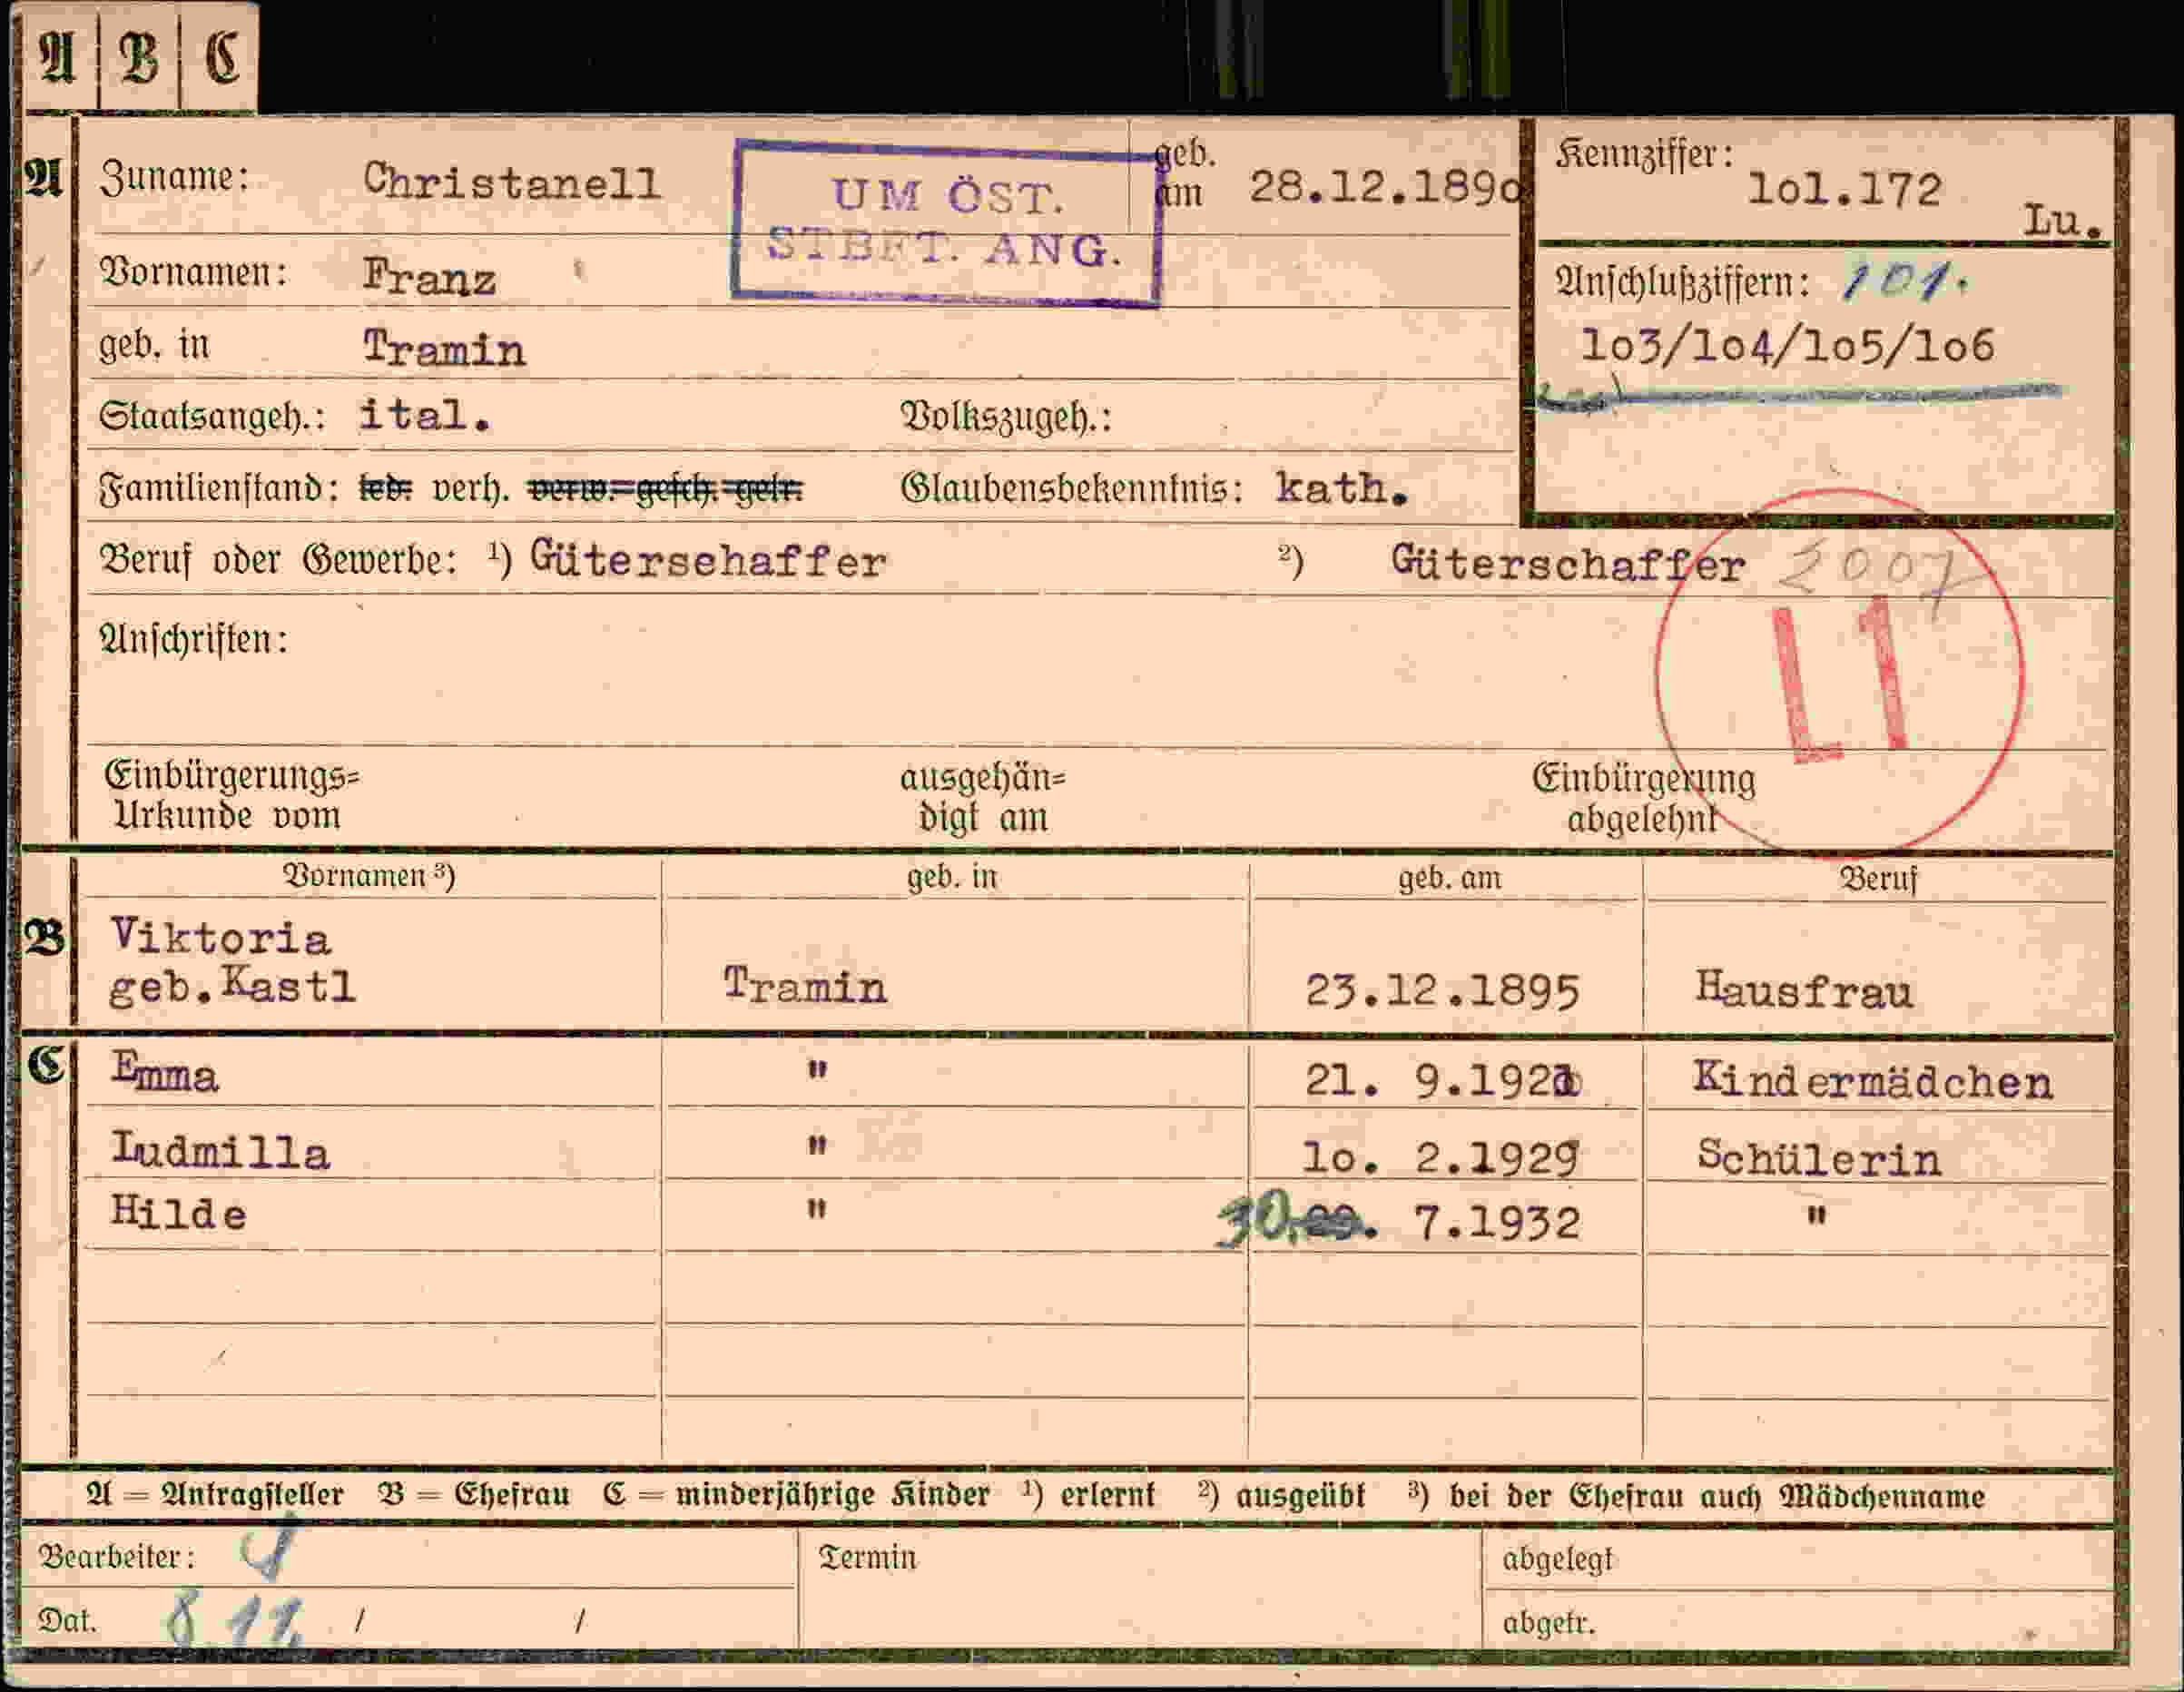 A B C
A Zuname: Christanell geb. am 28.12.189o Kennziffer: 1o1.172 Lu.
UM ÖST.
STBFT. ANG.
Vornamen: Franz Anschlußziffern: 101.
geb. in Tramin 1o3/1o4/1o5/1o6
Staatsangeh.: ital. Volkszugeh.:
Familienstand: led. verh. verw. gesch. getr. Glaubensbekenntnis: kath.
Beruf oder Gewerbe: ¹) Gütersehaffer ²) Güterschaffer 2007
Anschriften:
L1
Einbürgerungs= ausgehän= Einbürgerung
Urkunde vom digt am abgelehnt
Vornamen ³) geb. in geb. am Beruf
B Viktoria
geb.Kastl Tramin 23.12.1895 Hausfrau
C Emma " 21. 9.192 Kindermädchen
Ludmilla " 1o. 2.1929 Schülerin
Hilde " 30. 7.1932 "
A = Antragsteller B = Ehefrau C = minderjährige Kinder ¹) erlernt ²) ausgeübt ³) bei der Ehefrau auch Mädchenname
Bearbeiter: Termin abgelegt
Dat. 8.11. / / abgetr.